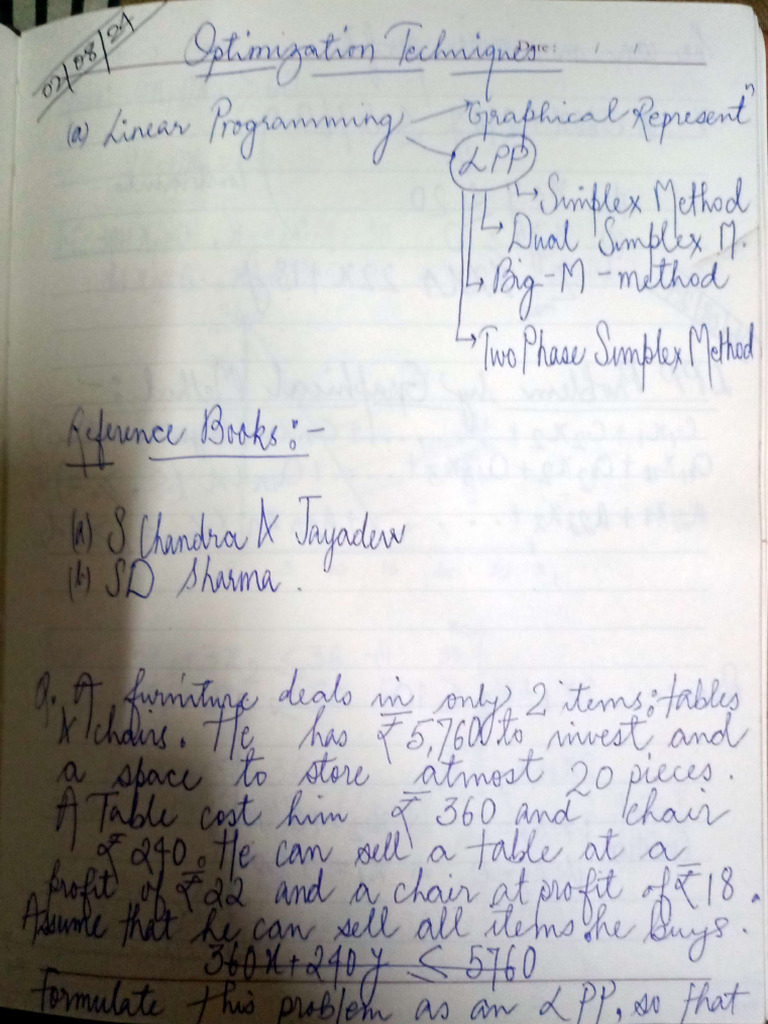 02/08/24
Optimization Techniques
Date: / /
(a) Linear Programming
"Graphical Represent"
LPP
Simplex Method
Dual Simplex M.
Big-M-method
Two Phase Simplex Method
Reference Books:-
(a) S Chandra & Jayadeva
(b) SD Sharma.
Q. A furniture deals in only 2 items: tables
& chairs. He has ₹5,760 to invest and
a space to store atmost 20 pieces.
A Table cost him ₹ 360 and chair
₹ 240. He can sell a table at a
profit of ₹22 and a chair at profit of ₹18.
Assume that he can sell all items he buys.
360x+240y ≤ 5760
Formulate this problem as an LPP, so that